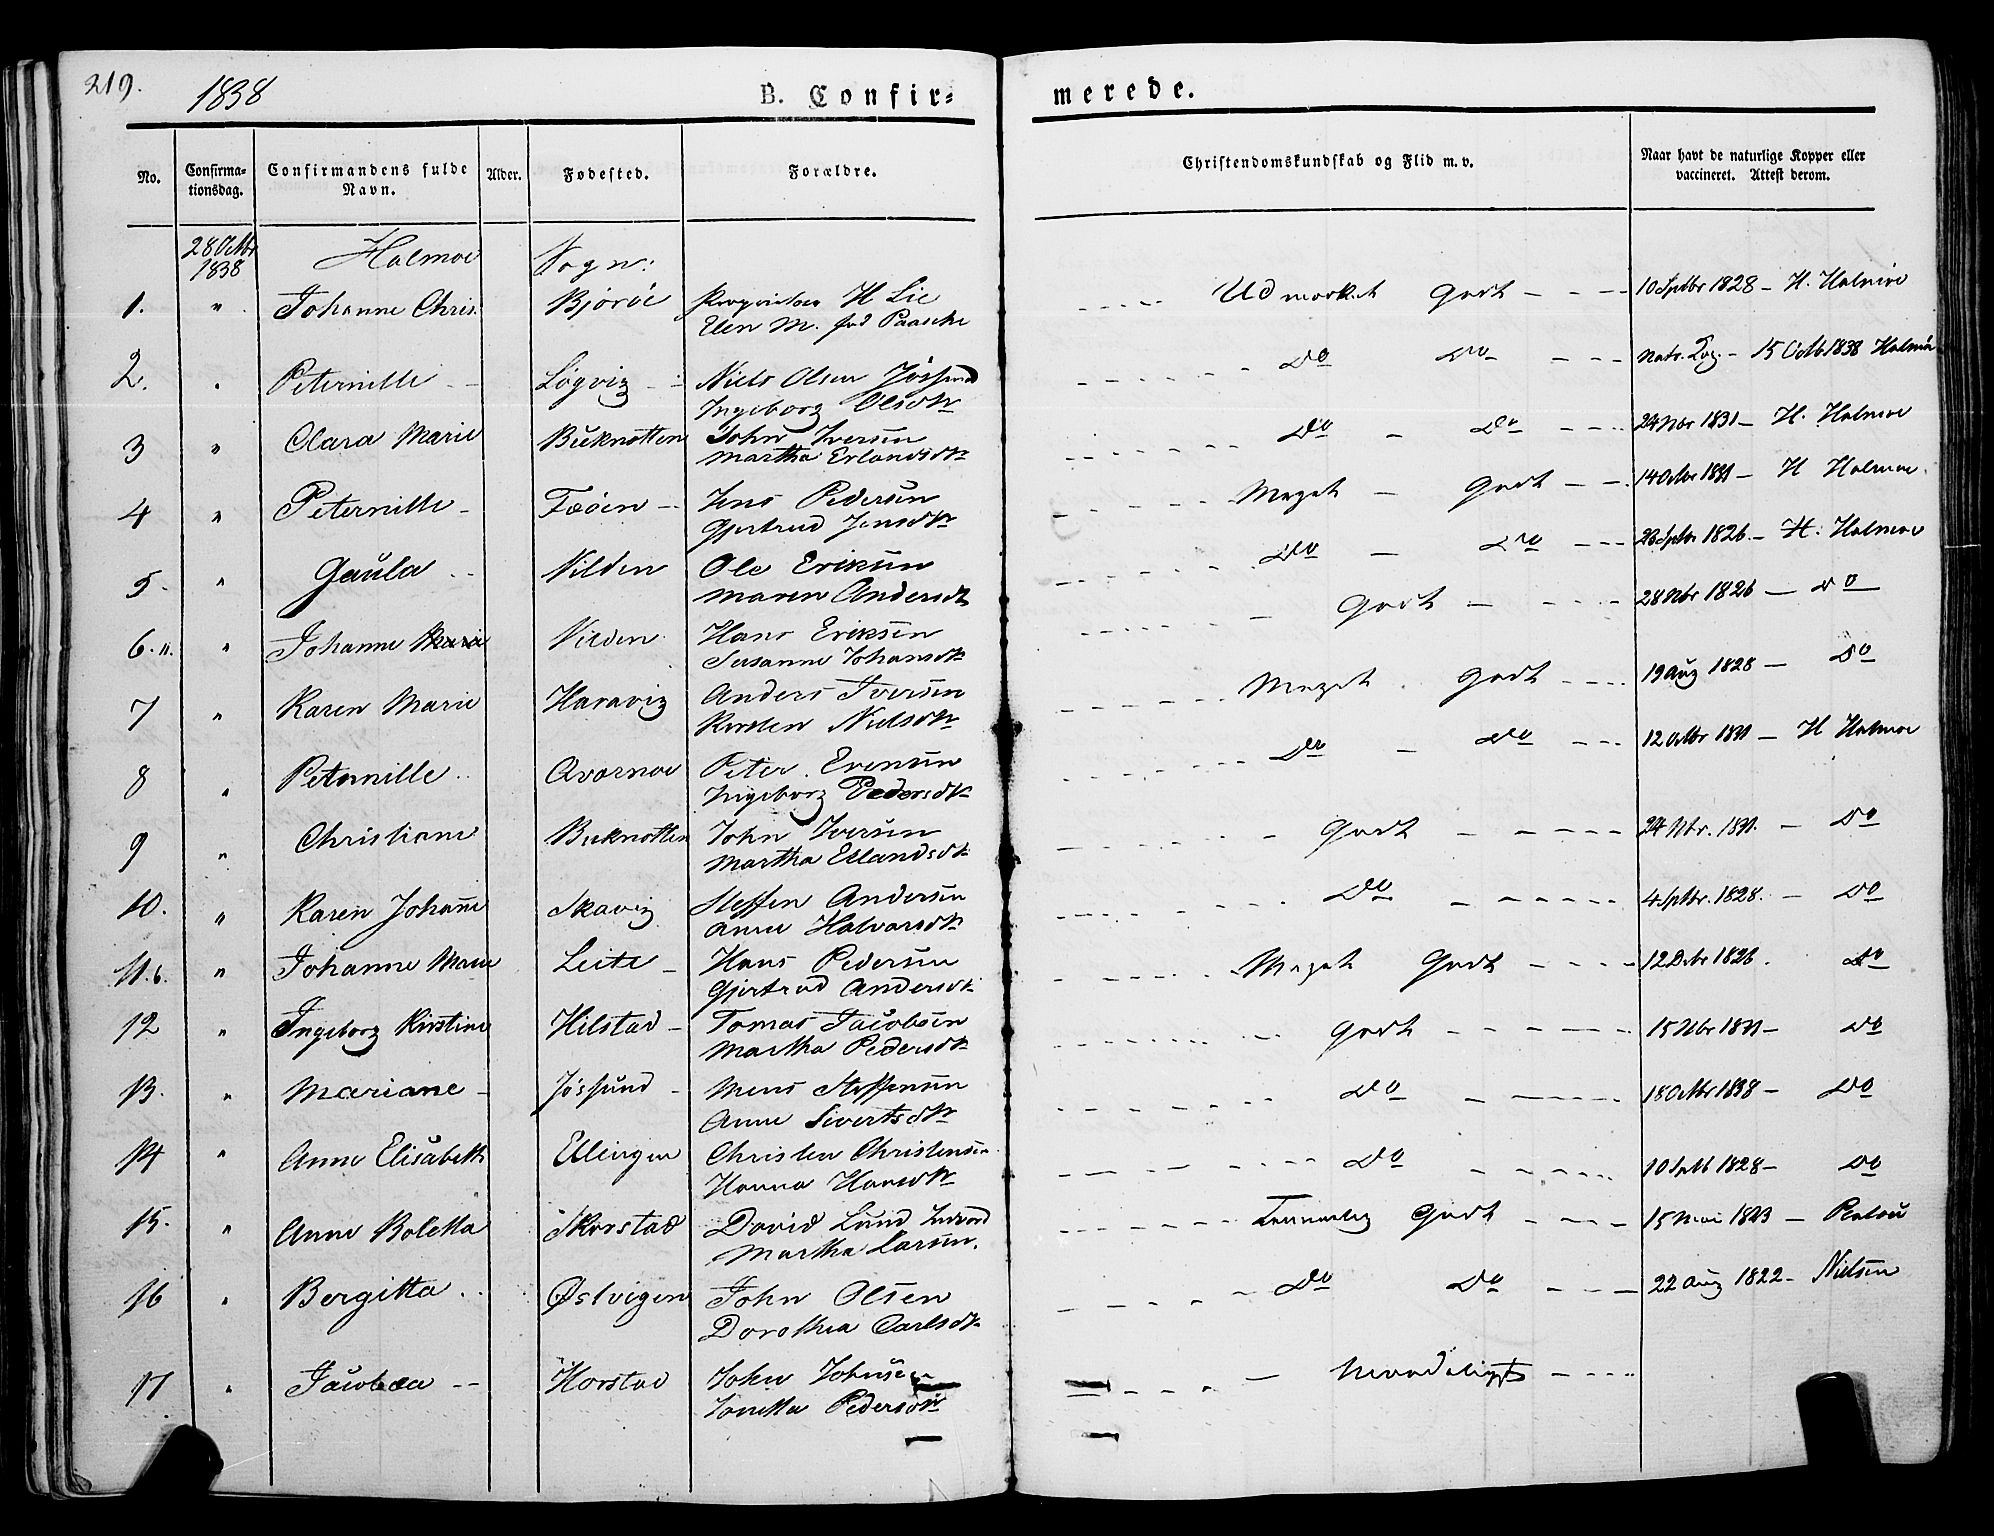 219.
1838
B. Confir-
merede.
No.
Confirma-
tionsdag.
Confirmandens fulde
Navn.
Alder.
Fødested.
Forældre.
Christendomskundskab og Flid m. v.
Naar havt de naturlige Kopper eller
vaccineret. Attest derom.
28 Octbr
1838
Halmøe Sogn:
1. " Johanne Chris. Bjørøe H Lie
Elen M. fød Paasche
Udmærket Godt 10 Sptbr 1828 - H. Halmöe
2. " Peternille Løgvig Niels Olsen
Ingeborg Olsdtr
Do Do 15 Octb 1838 Halmö
3 " Clara Marie Buknotten John Iversen
Martha Erlandsdtr
Do Do 24 Nbr 1831 - H. Halmoe
4 " Peternille Fæöen Jens Pedersen
Gjertrud Jensdtr
Meget Godt 14 Octbr 1831 - H Halmoe.
5. " Gaula Vilden Ole Eriksen
Maren Andersdtr
Do Do 28 Sptbr 1826 - H. Halmoe
6. 11. " Johanne Maria Vilden Hans Eriksen
Susanne Johansdtr
Godt 28 Nbr 1826 - Do
7 " Karen Marie Haravig Anders Iversen
Kirsten Nielsdtr
Meget Godt 19 Aug 1828 - Do
8 " Peternille Qvarnøe Peter Evensen
Ingeborg Pedersdtr
Do Do 12 Octbr 1831 - H Halmoe
9 " Christiane Buknotten John Iversen
Martha Erlandsdtr
Godt 24 Nbr. 1831. - Do
10. " Karen Johanne Skavig Steffen Andersen
Anne Halvarsdtr
Do 4 Sptbr. 1828. - Do
11. 6. " Johanne Marie Leite Hans Pedersen
Gjertrud Andersdtr
Meget Godt 12 Debr 1826. Do
12 " Ingeborg Kirstine Hilstad Tomas Jacobsen
Martha Pedersdtr
Godt 15 Nbr 1831 - Do
13. " Mariane Jøssund Mens Steffensen
Anne Sivertsdtr
Do 18 Octbr 1838 - Do
14 " Anne Elisabeth Ellingen Christen Christensen
Hanna Hansdtr
Do 10 Sptb 1828 - Do
15. " Anne Boletta Skorstad David Lund
Martha Larsen.
Temmelig Godt 15 Mai 1823 -
16 " Bergitta Østvigen John Olsen
Dorothea Carlsdtr
Do Do 22 Aug 1822 - Nielsen
17 " Jacobæa Horstad John Johnsen
Jonetta Pedersdtr
Maadeligt